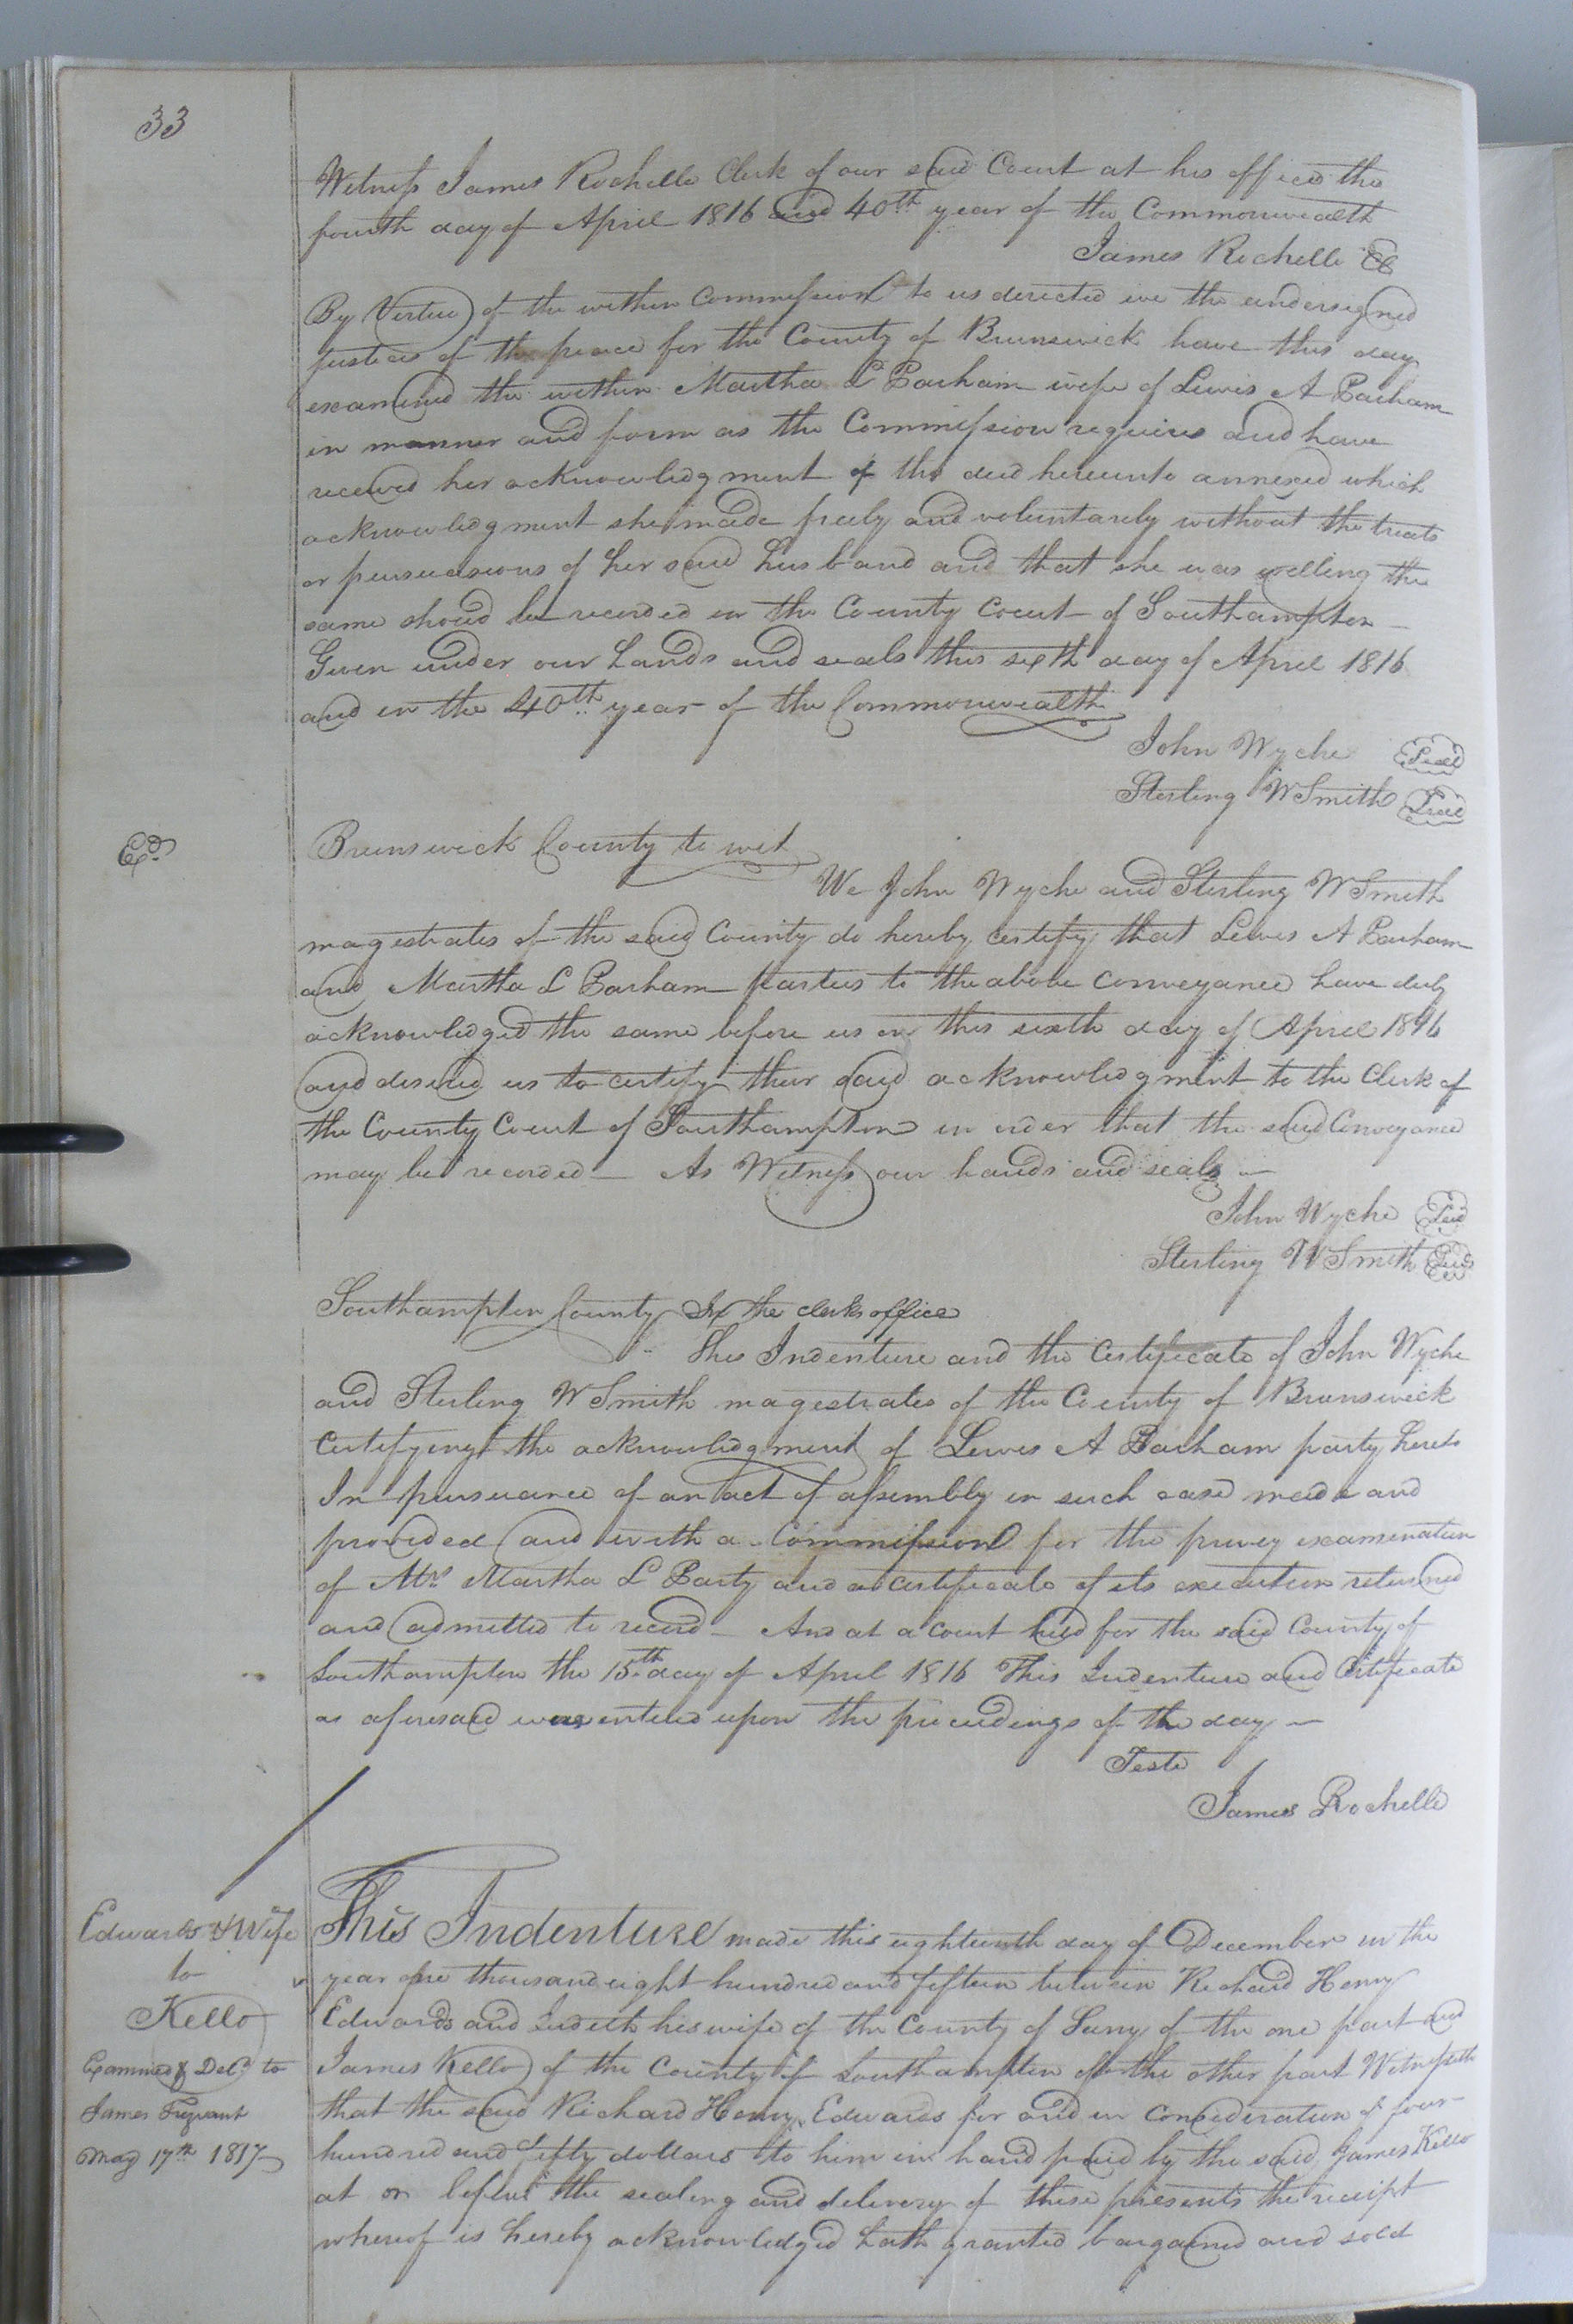 33
Witness James Rochelle Clerk of our said Court at his office the
fourth day of April 1816 and 40th year of the Commonwealth
James Rochelle
By Vertue of the within Commission to us derected we the undersigned
justices of the peace for the County of Brunswick have this day
examined the within Martha L Parham wife of Lewis A Parham
in manner and form as the Commission requires and have
received her acknowledgment of the deed hereunto annexed which
acknowledgment she made freely and voluntarely without the treats
or persuasions of her said husband and that she was welling the
same should be recorded in the County Court of Southampton
Given under our hands and seals this sixth day of April 1816
and in the 40th year of the Commonwealth
John Wyche Seal
Sterling W Smith Seal
Exd.
Brunswick County to wit
We John Wyche and Sterling W Smith
magestrates of the said County do hereby certify that Lewis A Parham
and Martha L Parham parties to the above conveyance have duly
acknowledged the same before us on this sixth day of April 1816
and desired us to certify their said acknowledgment to the Clerk of
the County Court of Southampton in order that the said Conveyance
may be recorded — As Witness our hands and seals —
John Wyche Seal
Sterling W Smith Seal
Southampton County In the clerks office
This Indenture and the Certificate of John Wyche
and Sterling W Smith magestrates of the County of Brunswick
Certifying the acknowledgment of Lewis A Parham party hereto
In pursuance of an act of assembly in such case made and
provided and with a Commission for the privey examenation
of Mrs Martha L Party and a certificate of its execution returned
and admitted to record — And at a court held for the said County of
Southampton the 15th day of April 1816 This Indenture and Certificate
as aforesaid was entered upon the proceedings of the day —
Teste
James Rochelle
Edwards & Wife
to
Kello
Examined & Deld. to
James Trezvant
May 17th 1817
This Indenture made this eighteenth day of December in the
year one thousand eight hundred and fifteen between Richard Henry
Edwards and Judeth his wife of the County of Surry of the one part and
James Kello of the County of Southampton of the other part Witnesseth
that the said Richard Henry Edwards for and in consideration of four
hundred and fifty dollars to him in hand paid by the said James Kello
at or before the sealing and delivery of these presents the receipt
whereof is hereby acknowledged hath granted bargained and sold